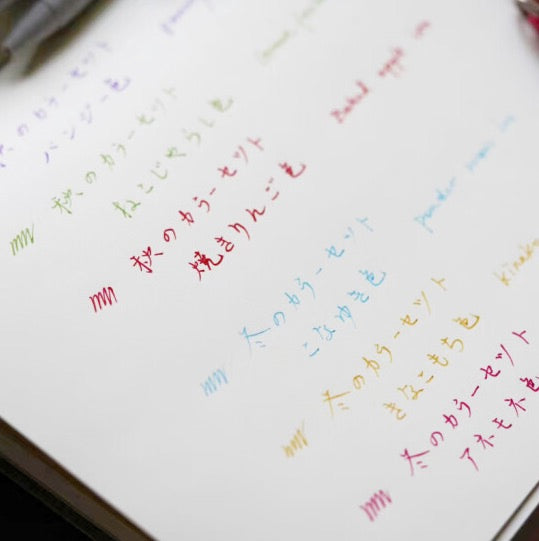 秋のカラーセット
パンジー色
秋のカラーセット
ねこじゃらし色
秋のカラーセット
焼きりんご色
Baked apple
冬のカラーセット
こなゆき色
powder snow
冬のカラーセット
きなこもち色
kinako
冬のカラーセット
アネモネ色